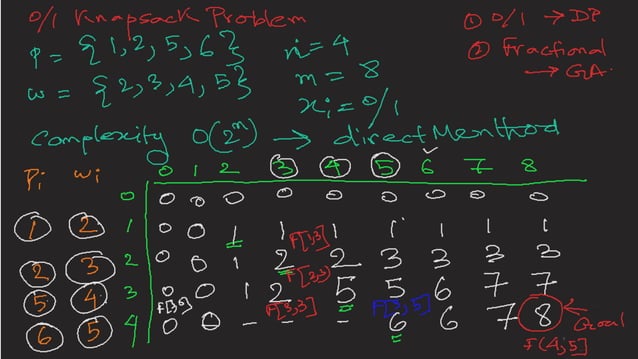 0/1 Knapsack Problem
P = {1, 2, 5, 6} n = 4
w = {2, 3, 4, 5} m = 8
xi = 0/1
① 0/1 → DP
② Fractional
→ GA.
Complexity O(2^n) → direct Menthod
Pi wi 0 1 2 3 4 5 6 7 8
0 0 0 0 0 0 0 0 0 0
1 2 1 0 0 1 1 1 1 1 1 1
F[3,3]
2 3 2 0 0 1 2 2 3 3 3 3
F[3,3]
5 4 3 0 0 1 2 5 5 6 7 7
F[3,5] F[3,3] F[3,5]
6 5 4 0 0 - - - 6 6 7 8 ← Goal
F[4,5]